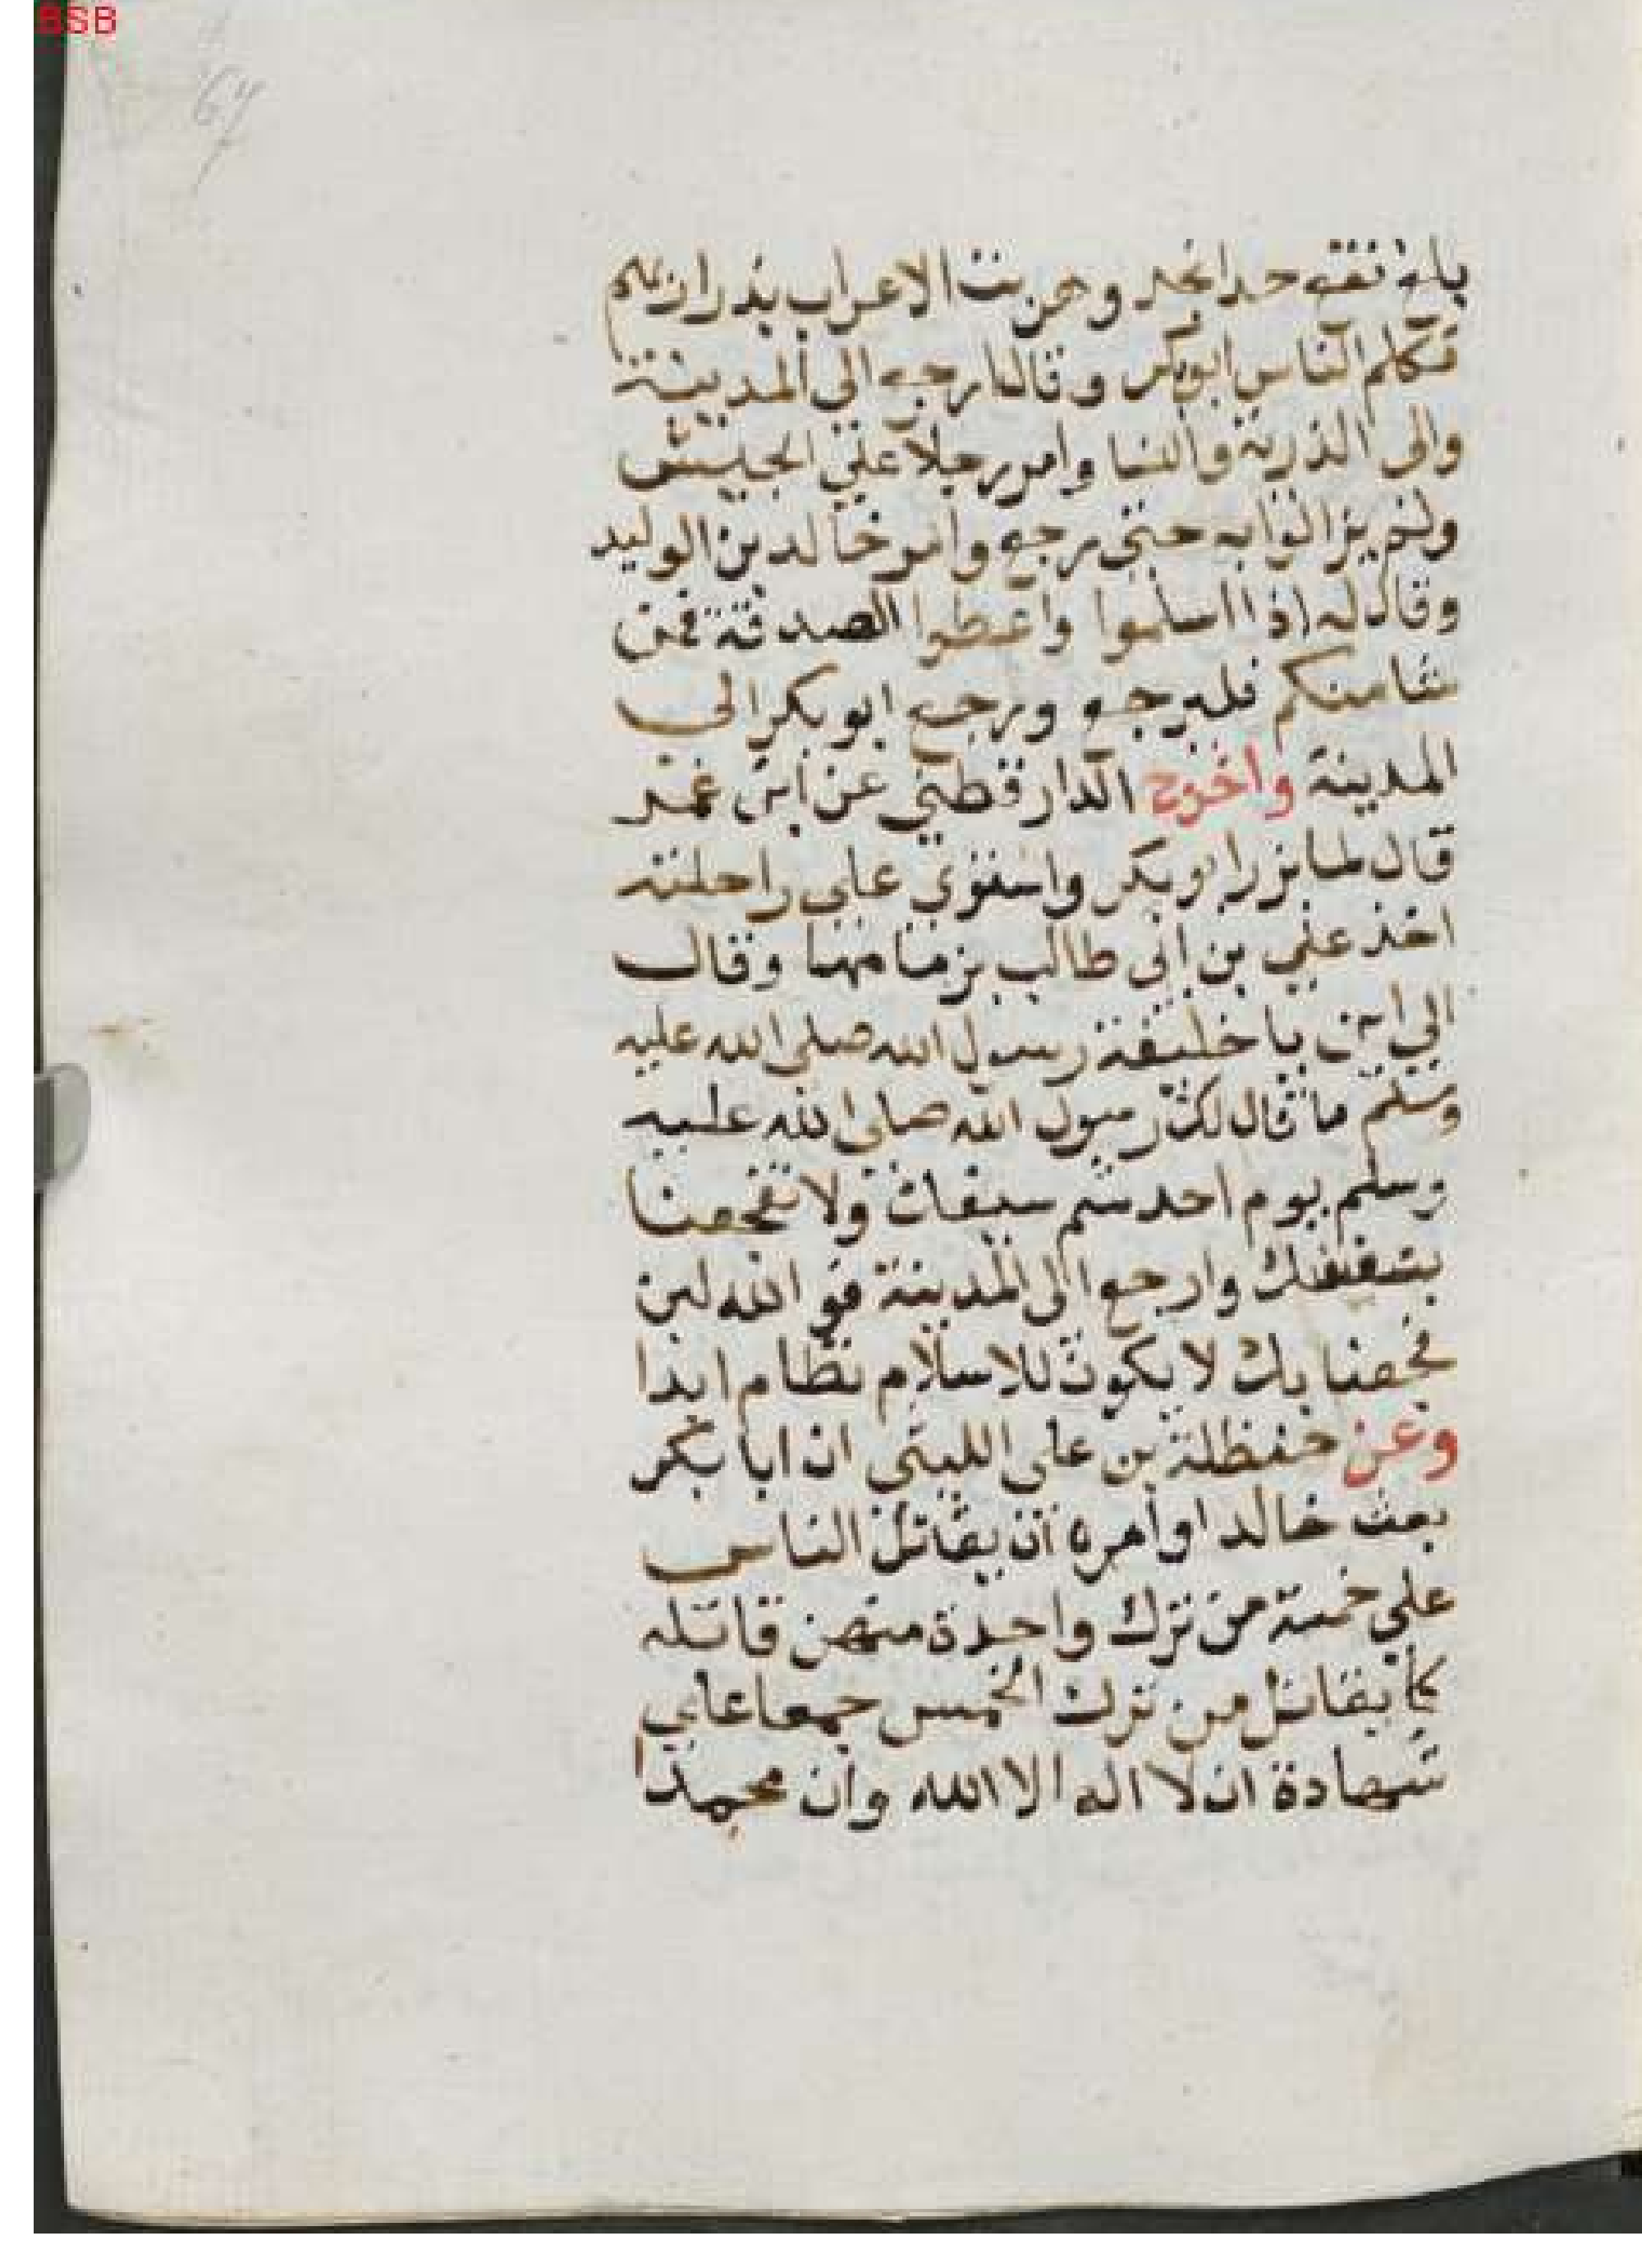 BSB
67
بلغ نقعا حدا نجد وهربت الاعراب بذراريهم
فكلم الناس ابوبكر وقالوا ارجع الى المدينة
والى الذرية والنسا وامر رجلا على الجيش
ولم يزالوا به حتى رجع وامر خالد بن الوليد
وقال له اذا اسلموا واعطوا الصدقة فمن
شا منكم فليرجع ورجع ابو بكر الى
المدينة واخرج الدارقطني عن ابن عمر
قال لما برز ابو بكر واستوى على راحلته
اخذ علي بن ابي طالب بزمامها وقال
الى اين يا خليفة رسول الله صلى الله عليه
وسلم ما قال لك رسول الله صلى الله عليه
وسلم يوم احد شم سيفك ولا تفجعنا
بنفسك وارجع الى المدينة فو الله لين
فجعنا بك لا يكون للاسلام نظام ابدا
وعن حنظلة بن علي الليثي ان ابا بكر
بعث خالدا وامره ان يقاتل الناس
على خمسة من ترك واحدة منهن قاتله
كما يقاتل من ترك الخمس جمعا على
شهادة ان لا اله الا الله وان محمدا